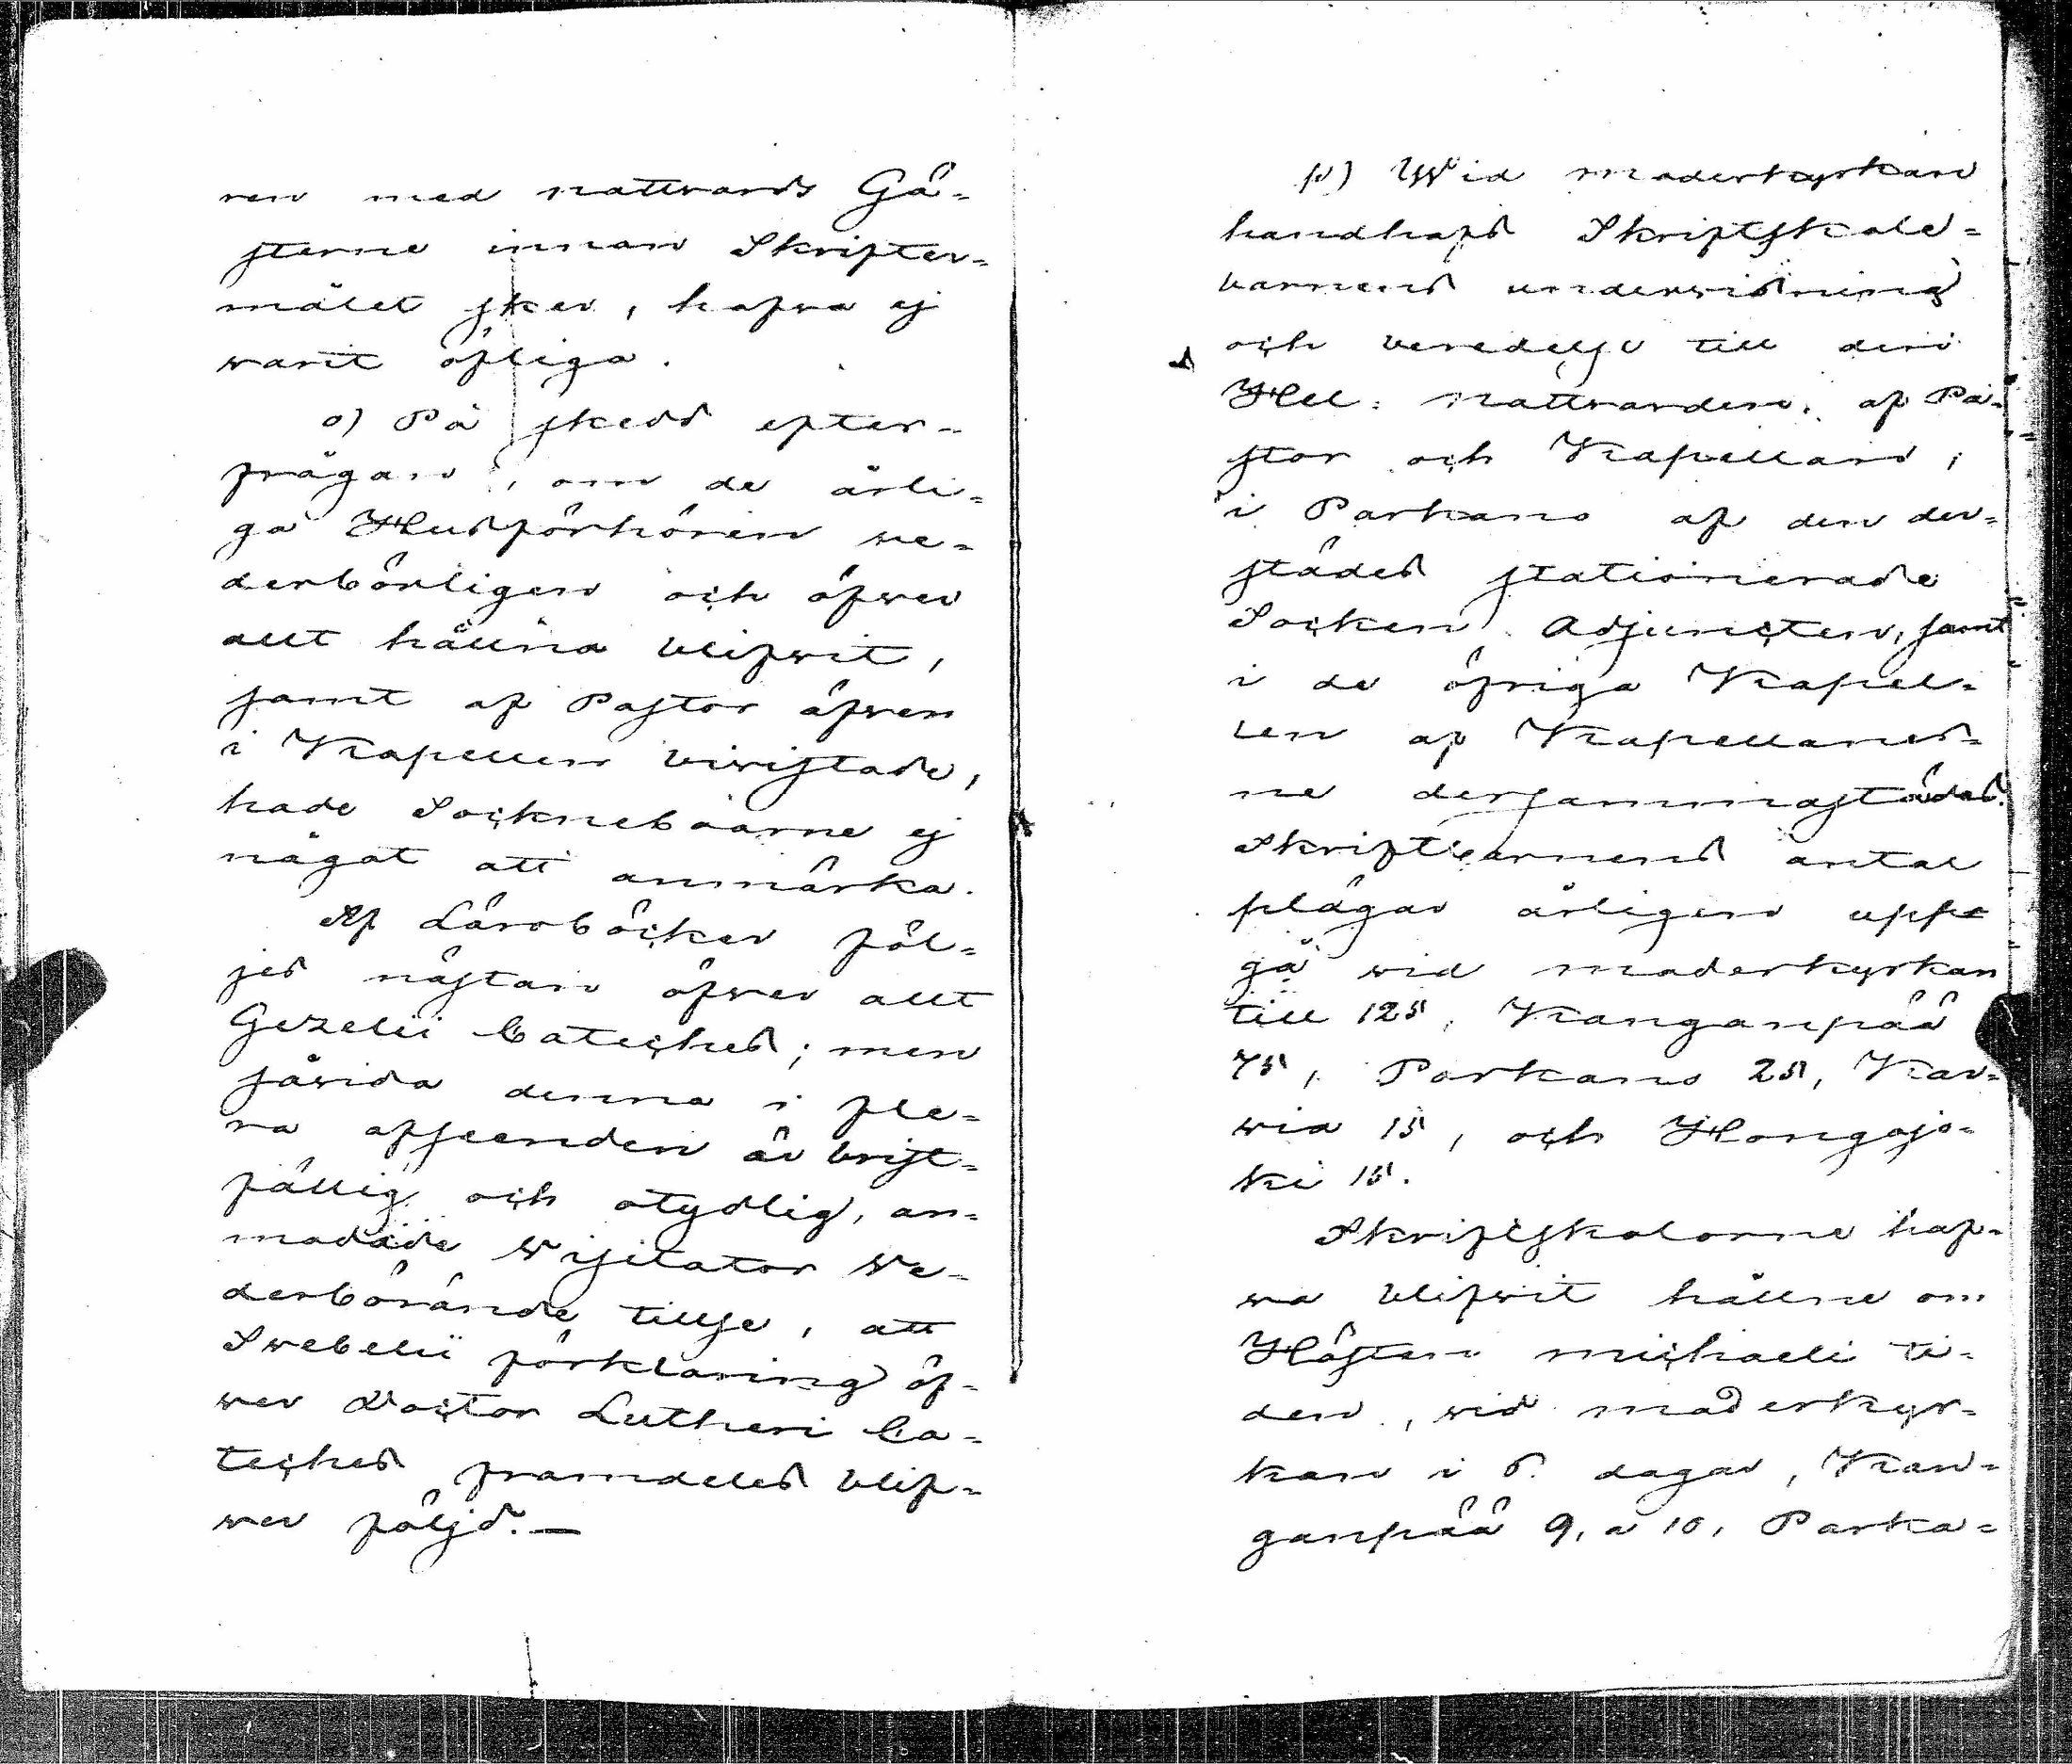 ren med nattvards Gä-
sterne innan Skrifter-
målet sker, hafva ej
warit öfliga.
o) På skedd efter-
frågan, om de årli-
ga Husförhören we-
derbörligen och öfwer
allt hållna blifwit,
samt af Pastor äfwen
i Kapellen biwistade,
hade Sockneboarne ej
något att anmärka.
Af Läroböcker föl-
jes nästan öfwer allt
Gezelii Cateches; men
såvida denna i fle-
ra afseenden är brist-
fällig och otydlig, an-
modade Visitator We-
derbörande tillse, att
Swebelii förklaring öf-
wer Doctor Lutheri Ca-
teches framdeles blif-
wer följd. —
p) Wid moderkyrkan
handhafs Skriftskole-
barnens underwisning
och beredelse till den
Hel: Nattwarden, af Pa-
stor och Kapellan;
i Parkano af den der-
städes stationerade
Socken Adjuncten, samt
i de öfriga Kapel-
len af Kapellaner-
ne dersammastädes.
Skriftbarnens antal
plägar årligen upp-
gå wid moderkyrkan
till 125, Kanganpää
75, Parkano 25, Kar-
wia 15, och Hongojo-
ki 15.
Skriftskolorne haf-
wa blifwit hållne om
Hösten Michaeli ti-
den, wid moderkyr-
kan i 6. dagar, Kan-
ganpää 9, a 10, Parka-